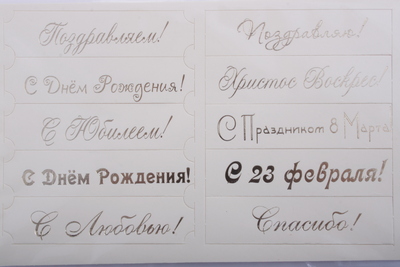 Поздравляем!
С Днём Рождения!
С Юбилеем!
С Днём Рождения!
С Любовью!
Поздравляю!
Христос Воскрес!
С Праздником 8 Марта!
С 23 февраля!
Спасибо!